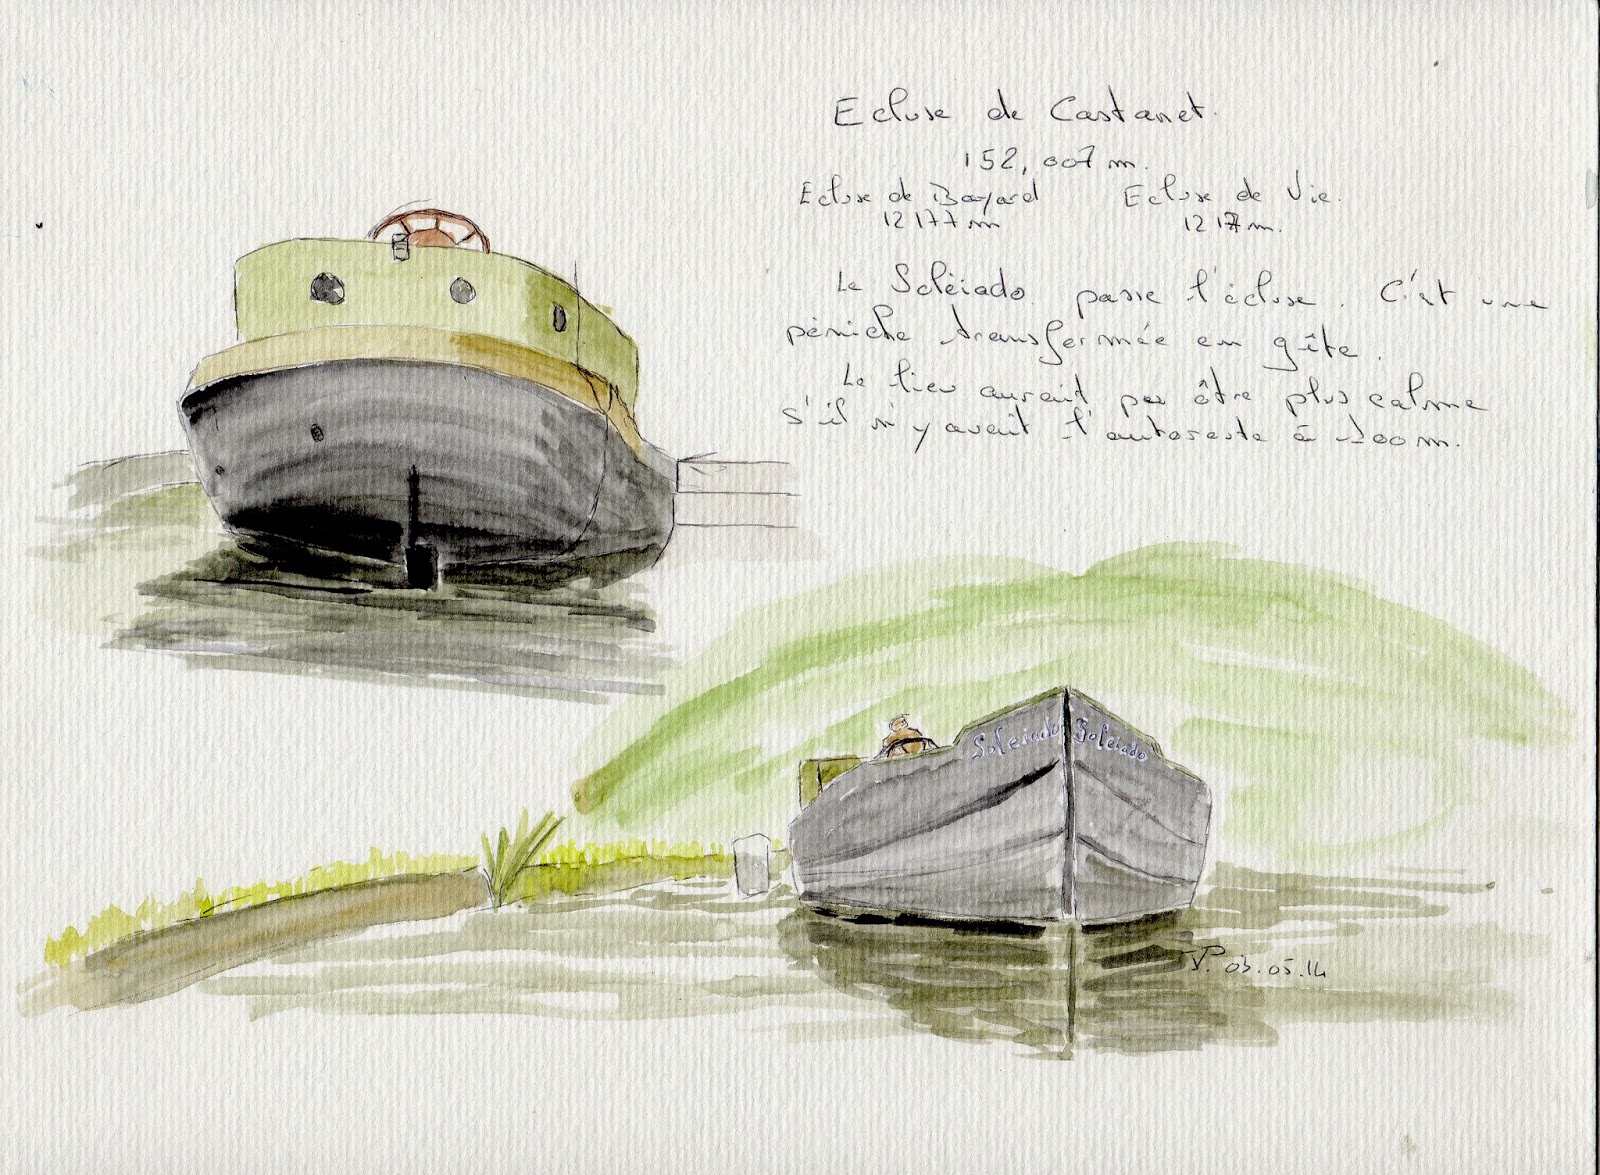 Ecluse de Castanet.
152,007 m.
Ecluse de Bayard Ecluse de Vic.
12 177 m 12 17 m.
Le Soleiado passe l'écluse. C'est une
péniche transformée en gîte.
Le lieu aurait pu être plus calme
s'il n'y avait l'autoroute à 100 m.
Soleiado Soleiado
VP. 03.05.14